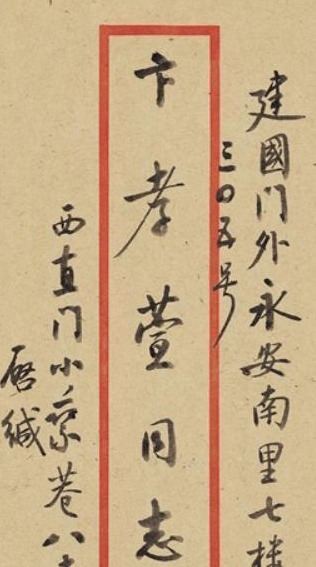 建國门外永安南里七楼
三〇五号
卞孝萱同志
西直门小乘巷八
启缄